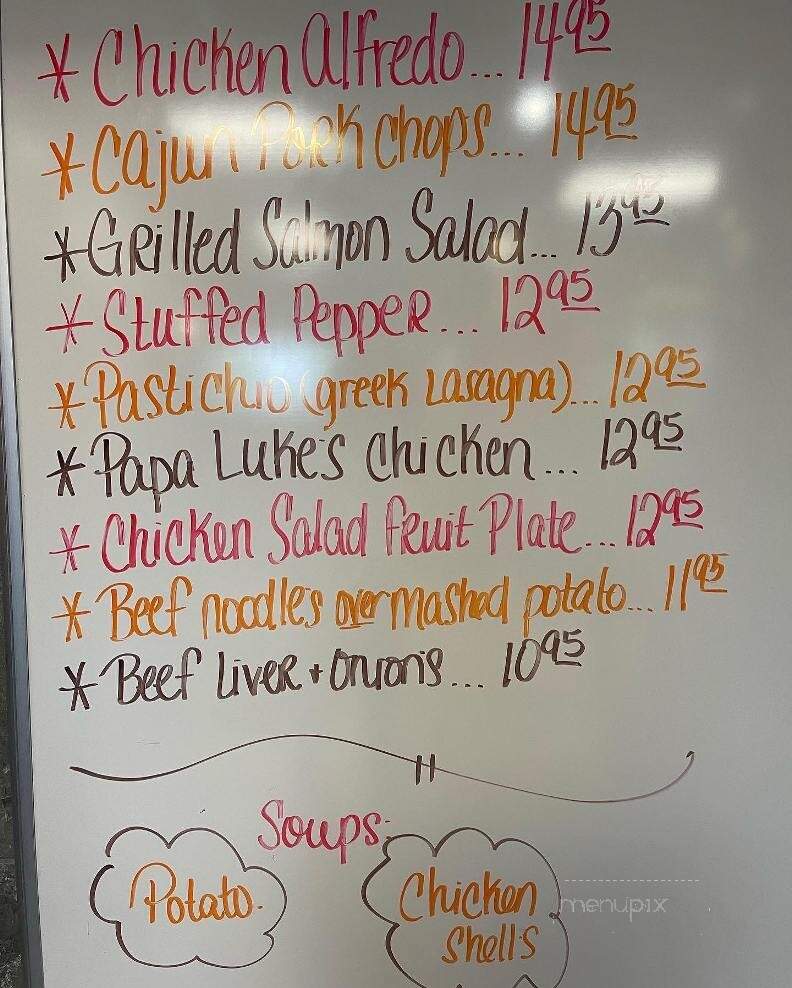 * Chicken Alfredo... 14 95
* Cajun Pork chops... 14 95
* Grilled Salmon Salad... 13 95
* Stuffed Pepper... 12 95
* Pastichio (greek Lasagna)... 12 95
* Papa Luke's Chicken... 12 95
* Chicken Salad fruit Plate... 12 95
* Beef noodles over mashed potato... 11 95
* Beef Liver + Onions... 10 95
Soups:
Potato
Chicken
Shells
menupix